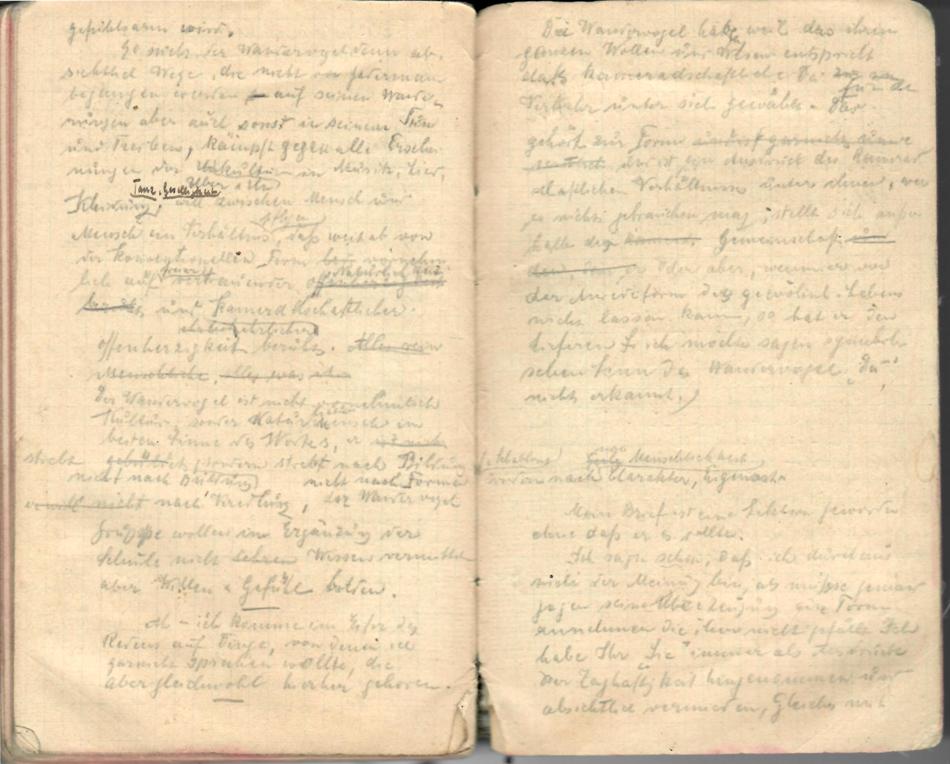 gefühlsarm wird.
So sucht der Wandervogel denn ab-
sichtlich Wege, die nicht von jedermann
begangen werden auf seinen Wande-
rungen aber auch sonst in seinem Tun
und Treiben, kämpft gegen alle Erschei-
nungen der Unkultur in Musik, Lied,
Tanz, Geselligkeit
Kleidung, will zwischen Mensch und
Mensch ein Verhältnis, daß weit ab von
der konventionellen Form
lich auf vertrauender
und kameradschaftlicher
offenherzigkeit beruht. Alles
Menschliche, alles was
Der Wandervogel ist nicht vornehmlich
Kultur, sonder Naturmensch im
besten Sinne des Wortes, er
strebt sondern strebt nach Bildung
nicht nach Bildung nicht nach Formen
nicht nach der Wandervogel
Gruppe wollen im Ergänzung der
Schule nicht Lehren Wissen vermitteln
aber Willen u Gefühl bilden.
Ah - ich komme im Eifer des
Redens auf Dinge, von denen ich
garnicht sprechen wollte, die
aber gleichwohl hierher gehören.
Die Wandervogel habe weil das ihren
ganzen Wollen und Wesen entspricht
daß kameradschaftliche Du
für den
Verkehr unter sich gewählt. Das
gehört zur Form
und ist ein Ausdruck des kamerad
schaftlichen Verhältnisses unter ihnen, wer
es nicht gebrauchen mag, stellt sich außer
halb der Gemeinschaft
oder aber, wenn er von
der Anredeform des gewöhnl. Lebens
nicht lassen kann, so hat er den
tieferen ich möchte sagen symboli-
schen Sinn des Wandervogel "Du"
nicht erkannt.)
Menschlichkeit
nach Charakter, Eigenart
Mein Brief ist eine Lektion geworden
ohne daß er es sollte.
Ich sage schon, daß ich durchaus
nicht der Meinung bin, als müsse jemand
gegen seine Überzeugung eine Form
annehmen die ihm nicht gefällt. Ich
habe Ihr "Sie" immer als Ausdruck
der Zaghaftigkeit hingenommen und
absichtlich vermieden, Gleiches mit